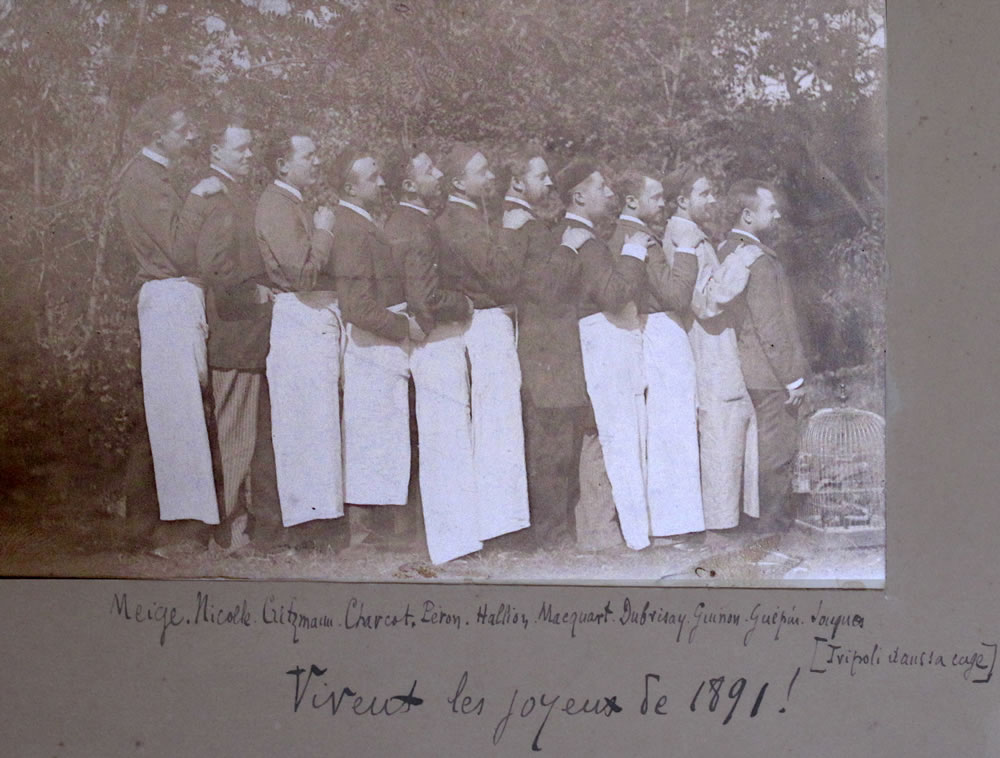 Meige. Nicolle. Critzmann. Charcot. Péron. Hallion. Macquart. Dubrisay. Guinon. Guépin. Jacques
[Tripoli dans sa cage]
Vivent les joyeux de 1891!